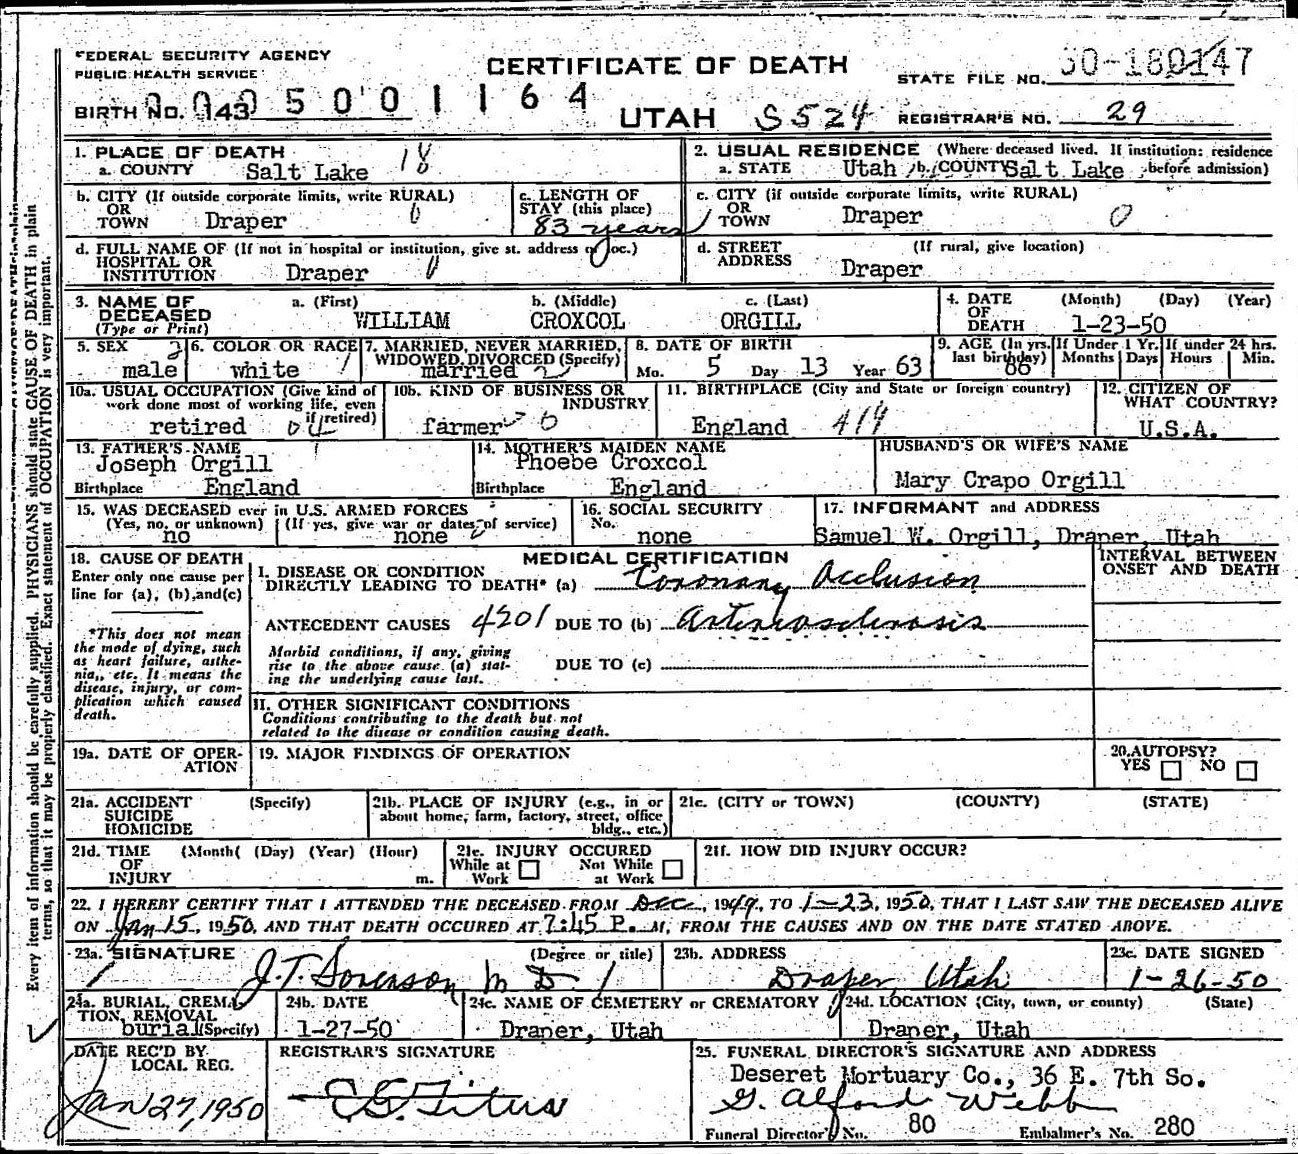 FEDERAL SECURITY AGENCY
PUBLIC HEALTH SERVICE
CERTIFICATE OF DEATH
STATE FILE NO.
BIRTH No. 143 5 0 0 1 1 6 4
UTAH S524
REGISTRAR'S NO. 29
1. PLACE OF DEATH
a. COUNTY Salt Lake 18
2. USUAL RESIDENCE (Where deceased lived. If institution: residence
a. STATE Utah b. COUNTY Salt Lake before admission)
b. CITY (If outside corporate limits, write RURAL)
OR
TOWN Draper
c. LENGTH OF
STAY (this place)
83 years
c. CITY (if outside corporate limits, write RURAL)
OR
TOWN Draper 0
d. FULL NAME OF (If not in hospital or institution, give st. address or loc.)
HOSPITAL OR
INSTITUTION Draper
d. STREET (If rural, give location)
ADDRESS Draper
3. NAME OF DECEASED
(Type or Print)
a. (First) b. (Middle) c. (Last)
WILLIAM CROXCOL ORGILL
4. DATE (Month) (Day) (Year)
OF
DEATH 1-23-50
5. SEX 2
male
6. COLOR OR RACE
white 1
7. MARRIED, NEVER MARRIED,
WIDOWED, DIVORCED (Specify)
married 2
8. DATE OF BIRTH
Mo. 5 Day 13 Year 63
9. AGE (In yrs. last birthday) 86
If Under 1 Yr. If under 24 hrs.
Months Days Hours Min.
10a. USUAL OCCUPATION (Give kind of
work done most of working life, even
if retired)
retired
10b. KIND OF BUSINESS OR
INDUSTRY
farmer
11. BIRTHPLACE (City and State or foreign country)
England 414
12. CITIZEN OF
WHAT COUNTRY?
U.S.A.
13. FATHER'S NAME
Joseph Orgill
Birthplace England
14. MOTHER'S MAIDEN NAME
Phoebe Croxcol
Birthplace England
HUSBAND'S OR WIFE'S NAME
Mary Crapo Orgill
15. WAS DECEASED ever in U.S. ARMED FORCES
(Yes, no, or unknown) (If yes, give war or dates of service)
no none
16. SOCIAL SECURITY
No.
none
17. INFORMANT and ADDRESS
Samuel W. Orgill, Draper, Utah
18. CAUSE OF DEATH
Enter only one cause per
line for (a), (b), and (c)
*This does not mean
the mode of dying, such
as heart failure, asthe-
nia, etc. It means the
disease, injury, or com-
plication which caused
death.
MEDICAL CERTIFICATION
I. DISEASE OR CONDITION
DIRECTLY LEADING TO DEATH* (a) Coronary Occlusion
ANTECEDENT CAUSES 4201 DUE TO (b) Arteriosclerosis
Morbid conditions, if any, giving
rise to the above cause (a) stat-
ing the underlying cause last.
DUE TO (c)
II. OTHER SIGNIFICANT CONDITIONS
Conditions contributing to the death but not
related to the disease or condition causing death.
INTERVAL BETWEEN
ONSET AND DEATH
19a. DATE OF OPER-
ATION
19. MAJOR FINDINGS OF OPERATION
20. AUTOPSY?
YES NO
21a. ACCIDENT (Specify)
SUICIDE
HOMICIDE
21b. PLACE OF INJURY (e.g., in or
about home, farm, factory, street, office
bldg., etc.)
21c. (CITY or TOWN) (COUNTY) (STATE)
21d. TIME (Month( (Day) (Year) (Hour)
OF
INJURY m.
21e. INJURY OCCURED
While at Work Not While at Work
21f. HOW DID INJURY OCCUR?
22. I HEREBY CERTIFY THAT I ATTENDED THE DECEASED FROM Dec, 1949, TO 1-23, 1950, THAT I LAST SAW THE DECEASED ALIVE
ON Jan 15, 1950, AND THAT DEATH OCCURED AT 7:45 P. M, FROM THE CAUSES AND ON THE DATE STATED ABOVE.
23a. SIGNATURE (Degree or title)
J.T. Sorenson M D
23b. ADDRESS
Draper, Utah
23c. DATE SIGNED
1-26-50
24a. BURIAL, CREMA-
TION, REMOVAL
burial (Specify)
24b. DATE
1-27-50
24c. NAME OF CEMETERY or CREMATORY
Draper, Utah
24d. LOCATION (City, town, or county) (State)
Draper, Utah
DATE REC'D BY
LOCAL REG.
Jan 27, 1950
REGISTRAR'S SIGNATURE
E.G. Titus
25. FUNERAL DIRECTOR'S SIGNATURE AND ADDRESS
Deseret Mortuary Co., 36 E. 7th So.
G. Alford Webb
Funeral Director's No. 80 Embalmer's No. 280
Every item of information should be carefully supplied. PHYSICIANS should state CAUSE OF DEATH in plain
terms, so that it may be properly classified. Exact statement of OCCUPATION is very important.